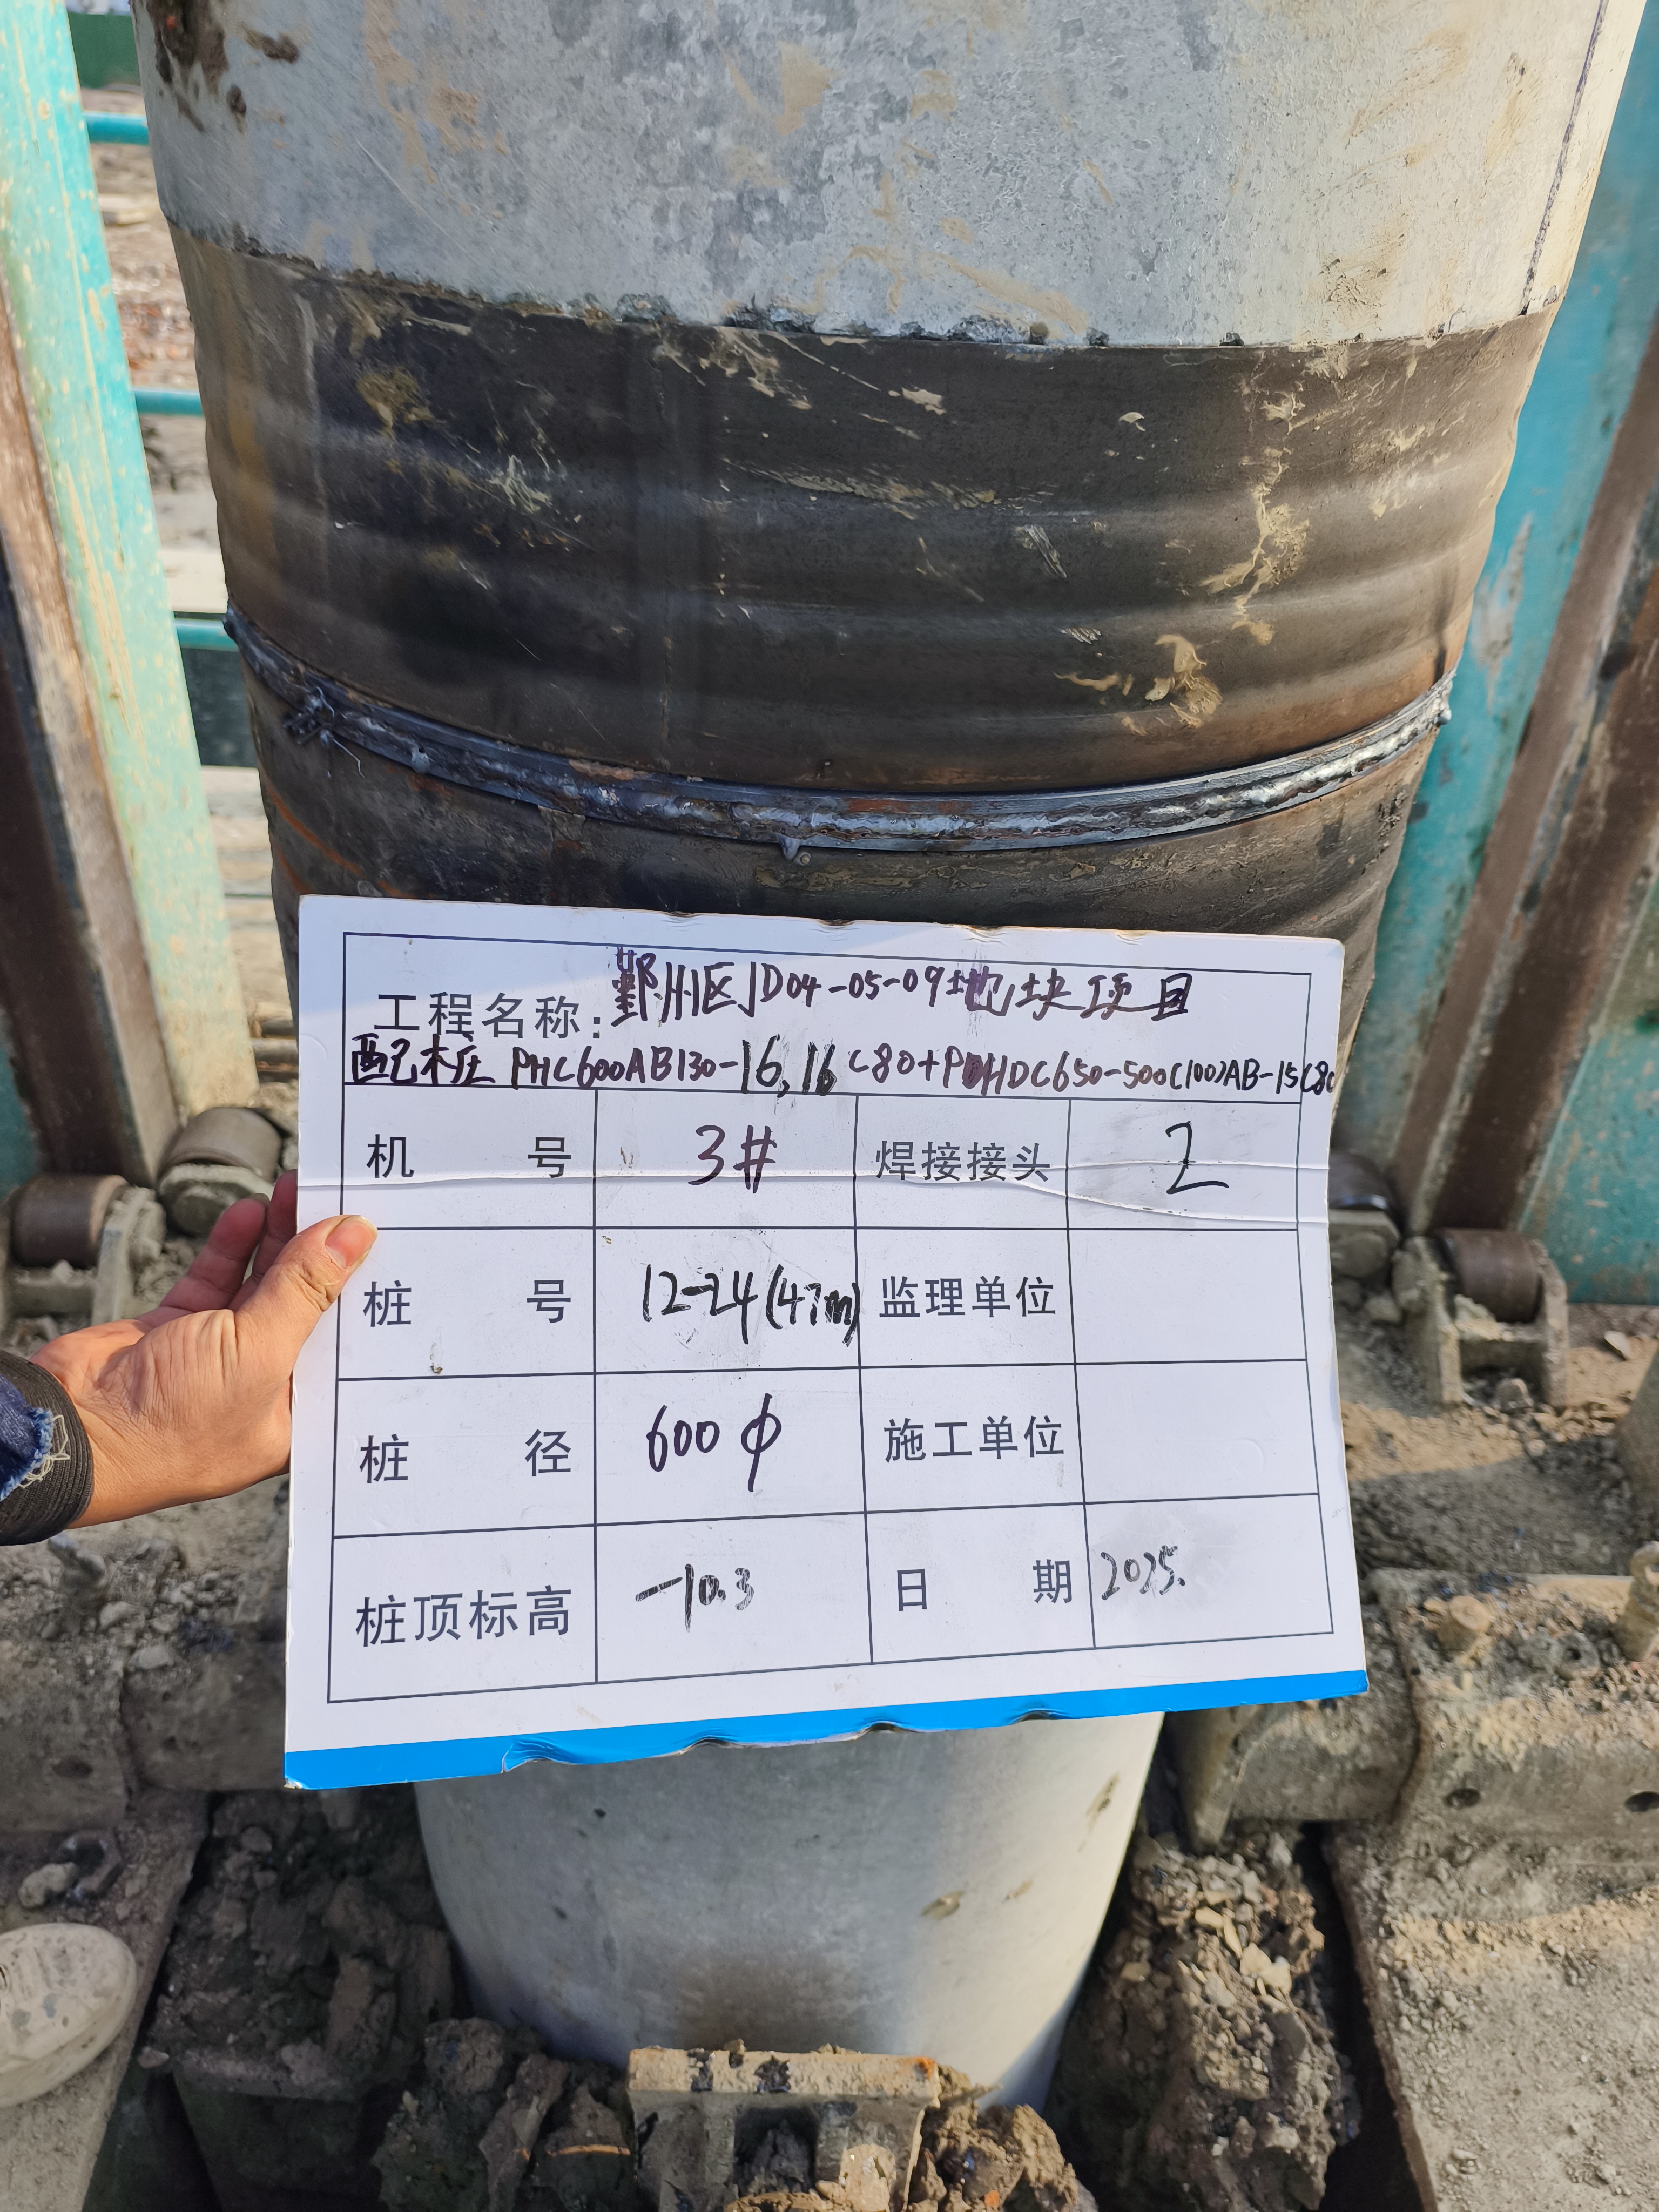 工程名称: 鄞州区JD04-05-09地块项目
配桩 PHC600AB130-16,16 C80+PHDC650-500(100)AB-15C80
机号 3# 焊接接头 2
桩号 12-24(47m) 监理单位
桩径 600φ 施工单位
桩顶标高 -10.3 日期 2025.